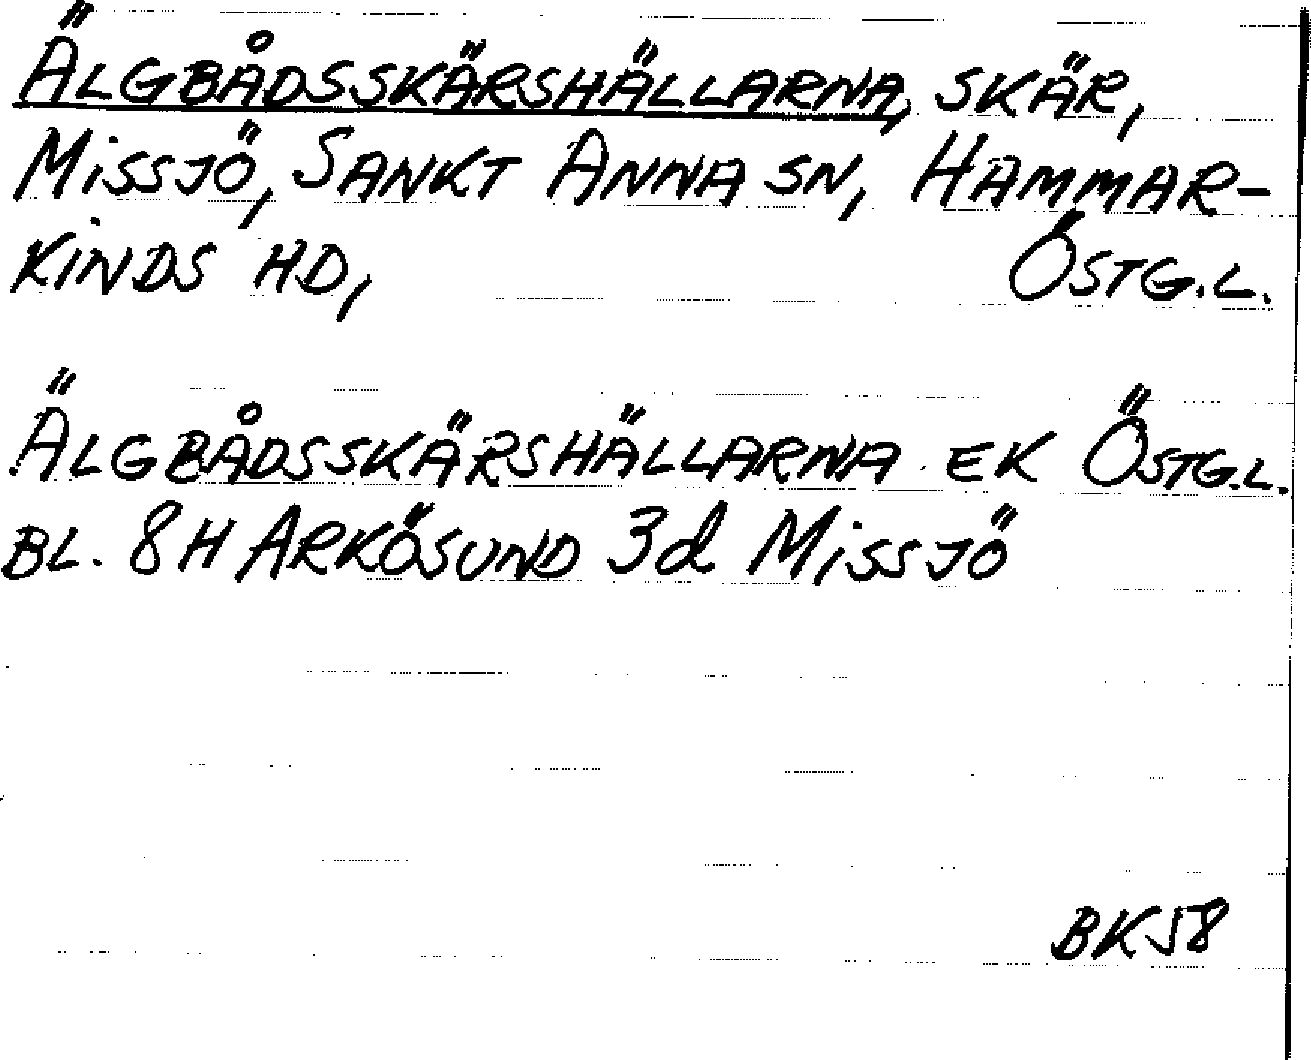 ÄLGBÅDSSKÄRSHÄLLARNA, SKÄR,
MISSJÖ, SANKT ANNA SN, HAMMAR-
KINDS HD, ÖSTG.L.
ÄLGBÅDSSKÄRSHÄLLARNA EK ÖSTG.L.
BL. 8H ARKÖSUND 3d MISSJÖ
BKJ8